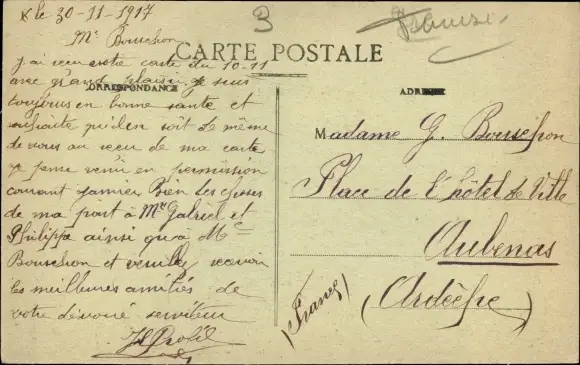 le 30-11-1917
3
Mr Bouschon
CARTE POSTALE
j'ai reçu votre carte du 10-11
avec grand plaisir je suis
CORRESPONDANCE
ADRESSE
toujours en bonne santé et
souhaite qu'il en soit de même
de vous au reçu de ma carte
je pense venir en permission
courant janvier Bien des choses
de ma part à Mrs Gabriel et
Philippe ainsi qu'à Me
Bouschon et veuillez recevoir
les meilleures amitiés de
votre dévoué serviteur
Madame G. Bouschon
Place de l'hôtel de Ville
Aubenas
(Ardèche)
(France)